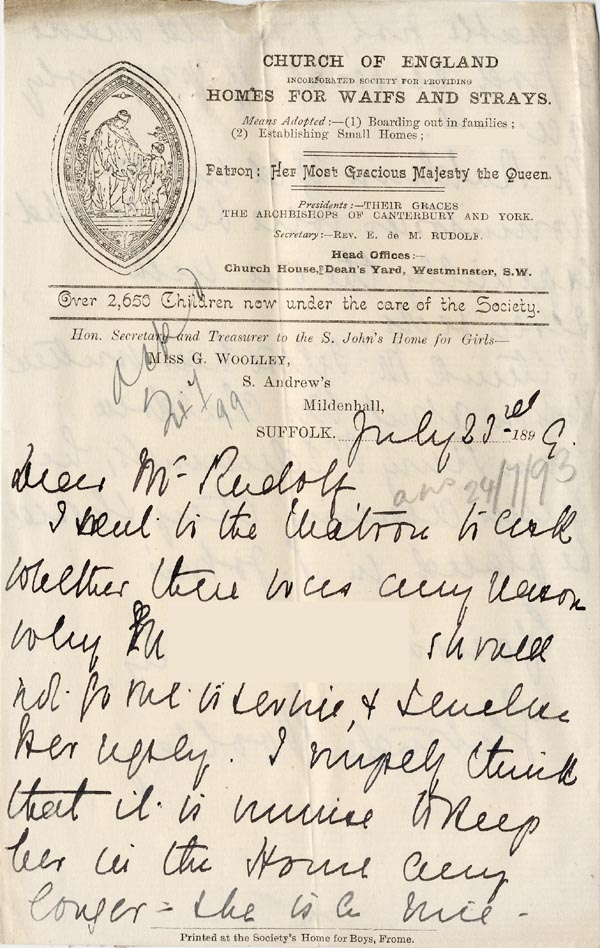 CHURCH OF ENGLAND
INCORPORATED SOCIETY FOR PROVIDING
HOMES FOR WAIFS AND STRAYS.
Means Adopted:—(1) Boarding out in families;
(2) Establishing Small Homes;
Patron: Her Most Gracious Majesty the Queen.
Presidents:—THEIR GRACES
THE ARCHBISHOPS OF CANTERBURY AND YORK.
Secretary:—REV. E. de M. RUDOLF.
Head Offices:—
Church House, Dean's Yard, Westminster, S.W.
Over 2,650 Children now under the care of the Society.
Hon. Secretary and Treasurer to the S. John's Home for Girls—
MISS G. WOOLLEY,
S. Andrew's
Mildenhall,
SUFFOLK. July 23rd 1899.
ans 24/7/93
Dear Mr Rudolf
I sent to the Matron to ask
whether there was any reason
why M should
not go out to service, & I enclose
her reply. I simply think
that it is unwise to keep
her in the Home any
longer - she is a nice -
Printed at the Society's Home for Boys, Frome.